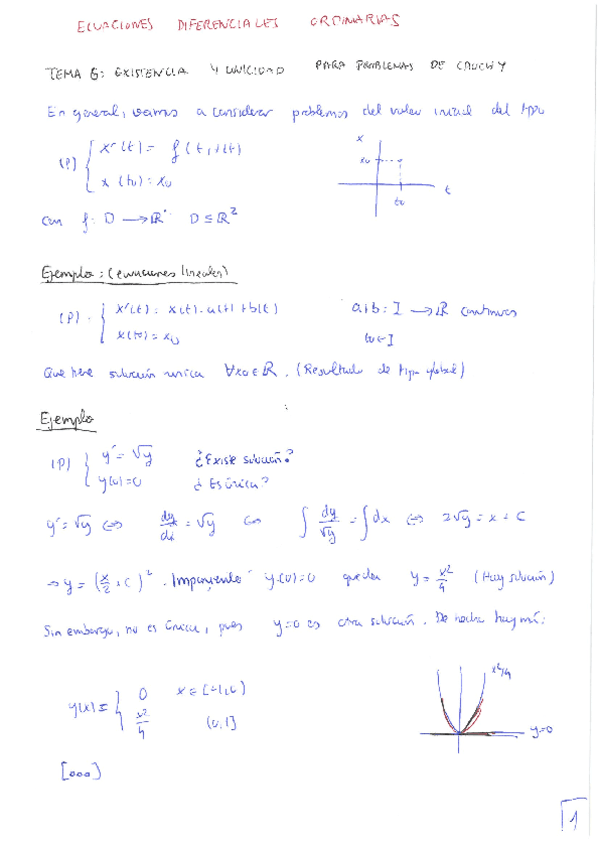 ECUACIONES DIFERENCIALES ORDINARIAS
TEMA 6: EXISTENCIA Y UNICIDAD PARA PROBLEMAS DE CAUCHY
En general, vamos a considerar problemas del valor inicial del tipo
(P) { x'(t) = f(t, x(t))
x(t0) = x0
x
x0
t0
t
con f: D → R D ⊆ R²
Ejemplo: (ecuaciones lineales)
(P) { x'(t) = x(t)·a(t) + b(t) a, b: I → R continuas
x(t0) = x0 t0 ∈ I
Que tiene solución única ∀x0 ∈ R. (Resultado de tipo global)
Ejemplo
(P) { y' = √y ¿Existe solución?
y(0) = 0 ¿Es única?
y' = √y ⇔ dy/dx = √y ⇔ ∫ dy/√y = ∫ dx ⇔ 2√y = x + C
→ y = (x/2 + C)². Imponiendo y(0)=0 queda y = x²/4 (Hay solución)
Sin embargo, no es única, pues y=0 es otra solución. De hecho hay más:
y(x) = { 0 x ∈ [-1,0)
x²/4 (0,1]
x²/4
y=0
[ooo]
1